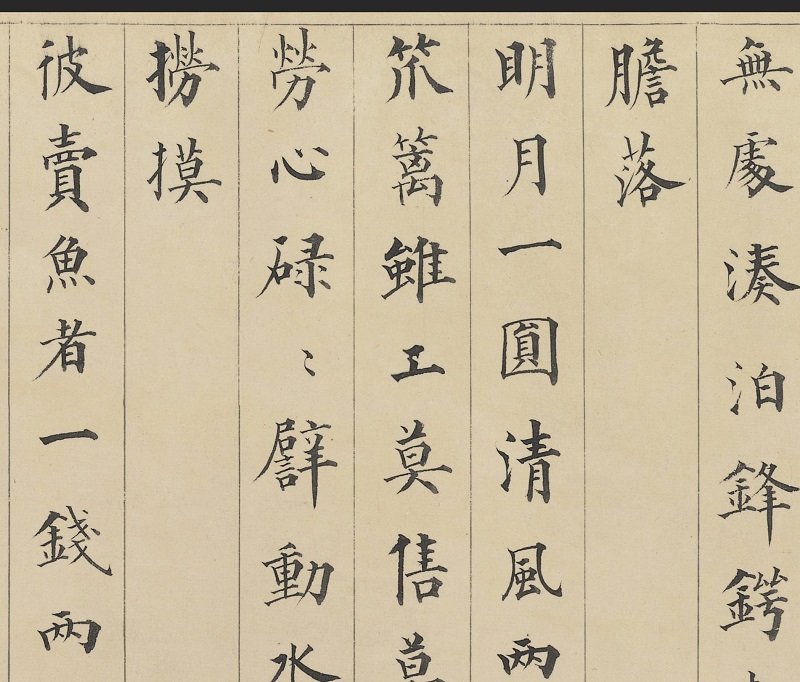 無處湊泊鋒鍔
膽落
明月一圓清風两
笊籬雖工莫售
勞心碌〻譬動水
撈摸
彼賣魚者一錢两